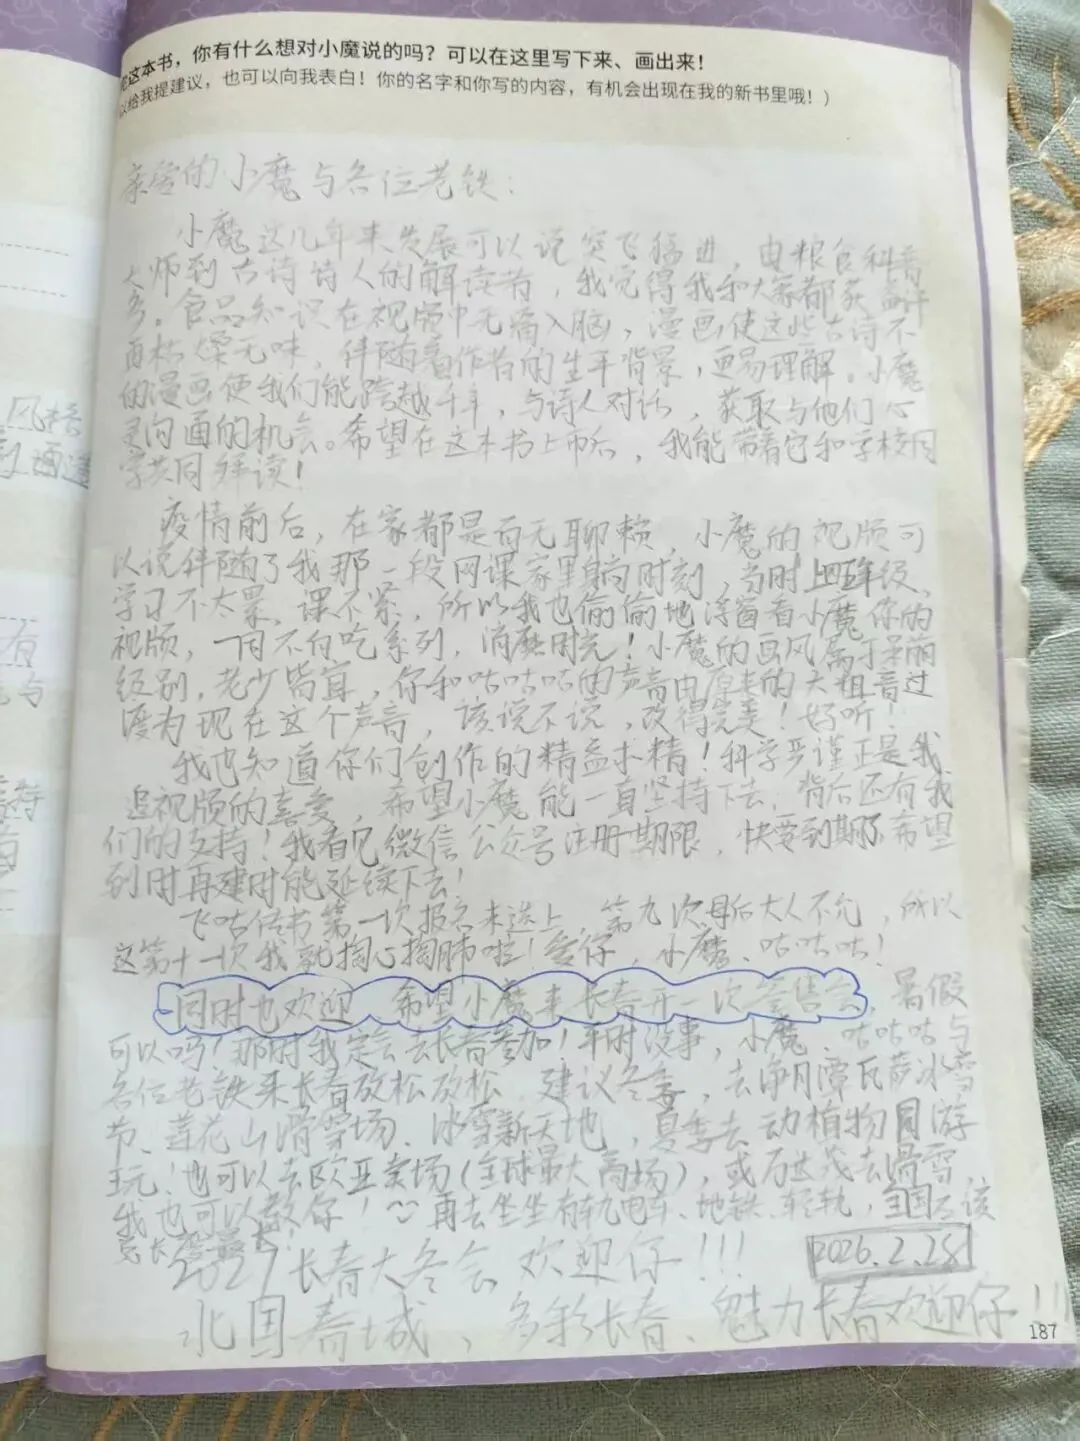 这本书，你有什么想对小魔说的吗？可以在这里写下来、画出来！
以给我提建议，也可以向我表白！你的名字和你写的内容，有机会出现在我的新书里哦！）
亲爱的小魔与各位老铁：
小魔这几年来发展可以说突飞猛进，由粮食科普
大师到古诗诗人的解读者，我觉得我和大家都获益许
多。食品知识在视频中无痛入脑，漫画使这些古诗不
再枯燥无味，伴随着作者的生平背景，更易理解。小魔
的漫画使我们能跨越千年，与诗人对话，获取与他们心
灵沟通的机会。希望在这本书上市后，我能带着它和学校同
学共同拜读！
疫情前后，在家都是百无聊赖，小魔的视频可
以说伴随了我那一段网课家里蹲时刻，当时上四五年级，
学习不太累，课不紧，所以我也偷偷地浮窗看小魔你的
视频，一日不白吃系列，消磨时光！小魔的画风属于呆萌
级别，老少皆宜，你和咕咕咕的声音由原来的大粗音过
渡为现在这个声音，该说不说，改得完美！好听！
我也知道你们创作的精益求精！科学严谨正是我
追视频的喜爱，希望小魔能一直坚持下去，背后还有我
们的支持！我看见微信公众号注册期限，快要到期了希望
到时再建时能延续下去！
飞咕传书第一次报名未选上，第九次母后大人不允，所以
这第十一次我就掏心掏肺啦！爱你，小魔、咕咕咕！
同时也欢迎，希望小魔来长春开一次签售会，暑假
可以吗？那时我定会去长春参加！平时没事，小魔、咕咕咕与
各位老铁来长春放松放松，建议冬季，去净月潭瓦萨冰雪
节、莲花山滑雪场、冰雪新天地，夏季去动植物园游
玩！也可以去欧亚卖场（全球最大商场），或万达茂去滑雪，
我也可以教你！再去坐坐有轨电车、地铁、轻轨，全国
2027长春大冬会欢迎你！！！
2026.2.28
北国春城，多彩长春、魅力长春欢迎你！！！
187
风格
画迹
有
与
持